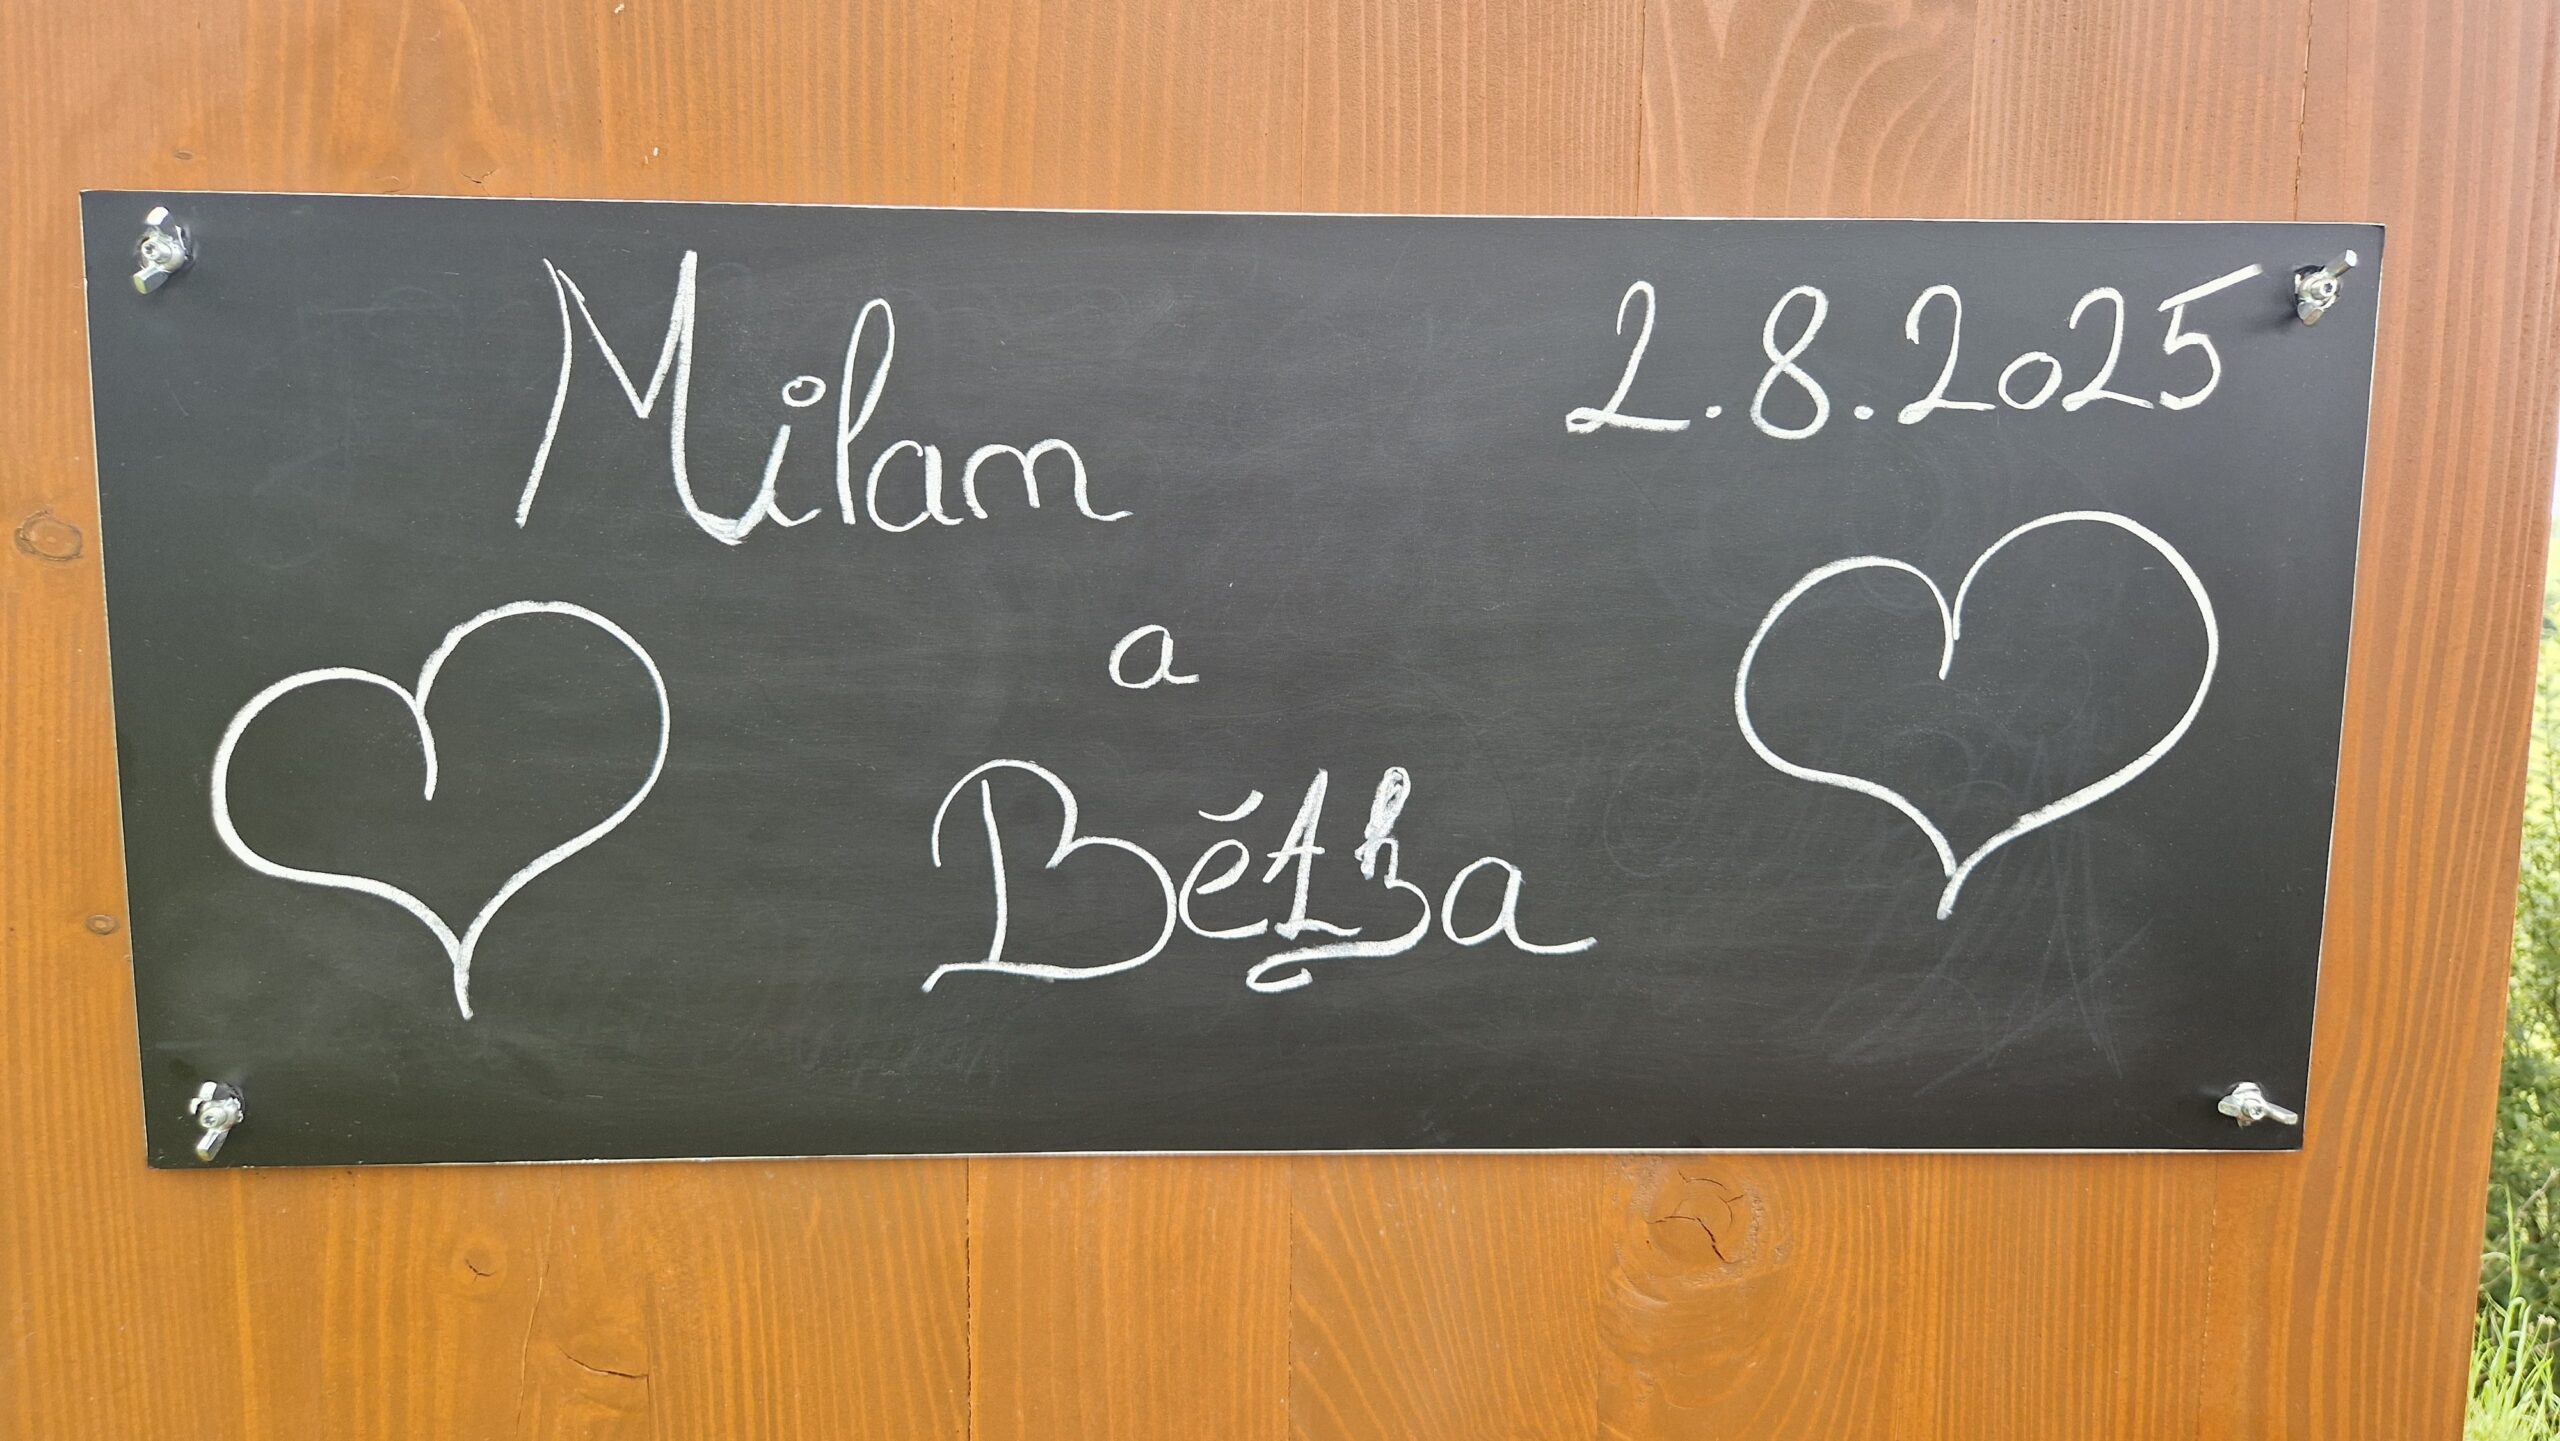 Milan 2.8.2025
a
Bětka